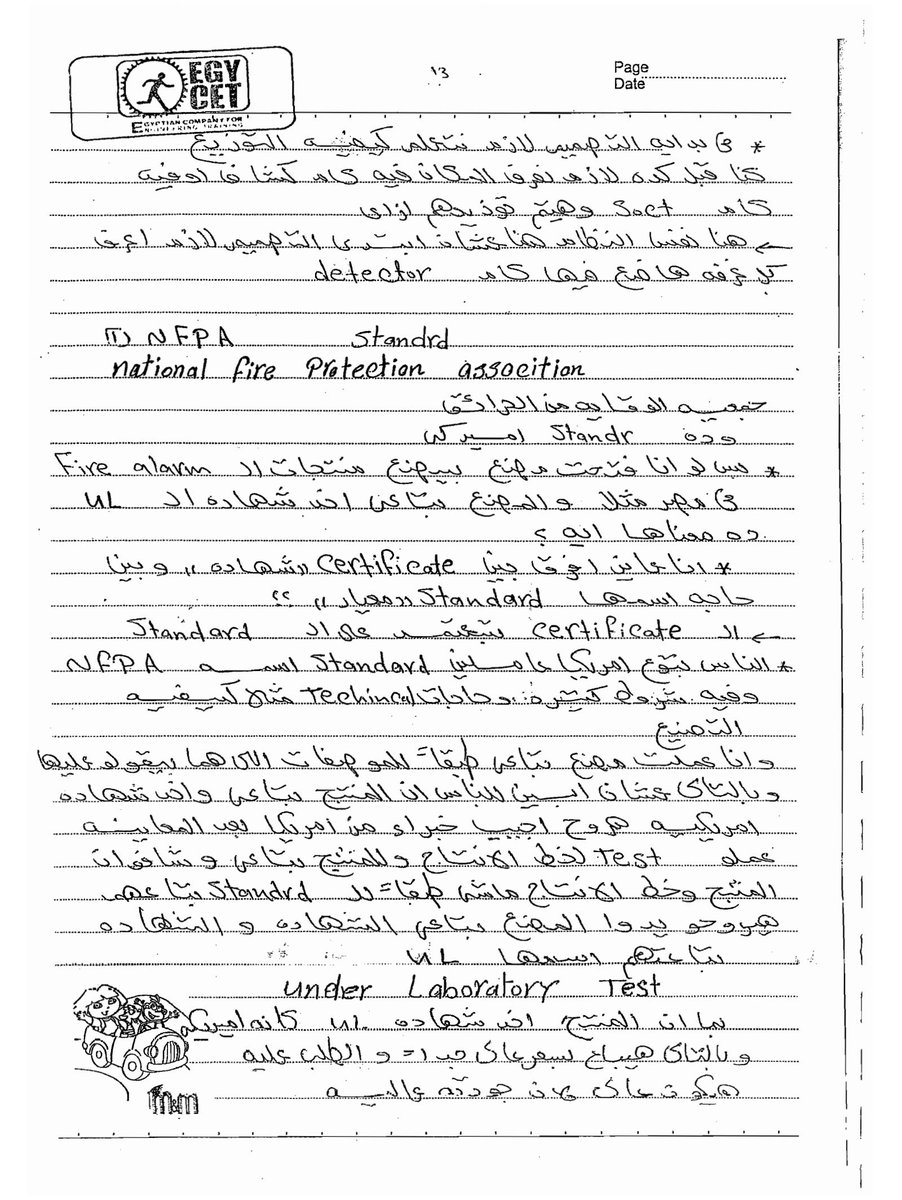 EGY
CET
EGYPTIAN COMPANY FOR
ENGINEERING TRAINING
١٣
Page
Date
* فى بدايه التصميم لازم نتعلم كيفيه التوزيع
كنا قبل كده لازم نعرف المكان فيه كام كشاف اوفيه
كام Soct وهيتم توزيعهم ازاى
← هنا نفس النظام هنا عشان ابتدى التصميم لازم اعرف
كل غرفه هاضع فيها كام detector
① NFPA Standrd
national fire Protection assocition
جمعيه الوقايه من الحرائق
وده Standr امريكى
* بس لو انا فتحت مصنع بيصنع منتجات الـ Fire alarm
فى مصر مثلا والمصنع بتاعى اخد شهاده الـ UL
ده معناها ايه ؟
* انا عايز افرق بين Certificate "شهاده" وبين
حاجه اسمها Standard "معيار" ؟؟
← الـ certificate بتعتمد على الـ Standard
* الناس بتوع امريكا عاملين Standard اسمه NFPA
وفيه شروط كتيره وحاجات Techincal مثلا كيفيه
التصنيع
وانا عملت مصنع بتاعى طبقاً للموصفات اللى هما بيقولو عليها
وبالتالى عشان ابين للناس ان المنتج بتاعى واخد شهاده
امريكيه هروح اجيب خبراء من امريكا بعد المعاينه
عملو Test لخط الانتاج وللمنتج بتاعى وشافو ان
المنتج وخط الانتاج ماشى طبقاً للـ Standrd بتاعهم
هيروحو يدوا المصنع بتاعى الشهاده و الشهاده
بتاعتهم اسمها UL
under Laboratory Test
بما ان المنتج اخد شهاده UL كانه امريكى
وبالتالى هيباع بسعر عالى جداً و الطلب عليه
هيكون عالى لان جودته عاليه
m&m